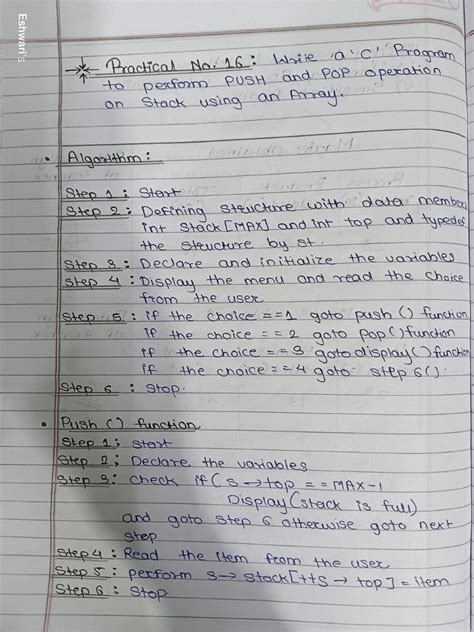 Eshwari's
Practical No. 16 : Write a 'C' Program
to perform PUSH and POP operation
on Stack using an Array.
• Algorithm :
Step 1 : Start
Step 2 : Defining structure with data members
int stack [MAX] and int top and typedef
the structure by st.
Step 3 : Declare and initialize the variables
Step 4 : Display the menu and read the choice
from the user
Step 5 : if the choice == 1 goto push () function
if the choice == 2 goto pop () function
if the choice == 3 goto display() function
if the choice == 4 goto step 6 ().
Step 6 : Stop.
• Push () function
Step 1 : start
Step 2 ; Declare the variables
Step 3 : check if ( s → top == MAX-1
Display (stack is full)
and goto step 6 otherwise goto next
step
step 4 : Read the item from the user
Step 5 : perform s → stack [++s → top] = item
Step 6 : stop